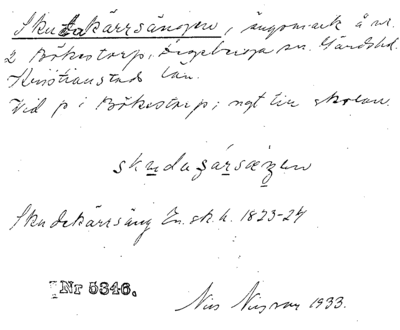 Skudakärrsängen, ängsmark å nr.
2 Bökestorp, Degeberga sn. Gärds hd.
Kristianstads län.
Vid p i Bökestorp; ngt till skolan.
skudaʒársæŋen
Skudekärrsäng En. sk. h. 1823-24
Nr 5346.
Nils 1933.